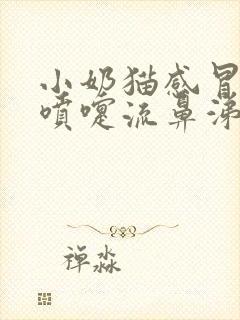 小奶猫感冒
喷嚏流鼻涕
禅淼